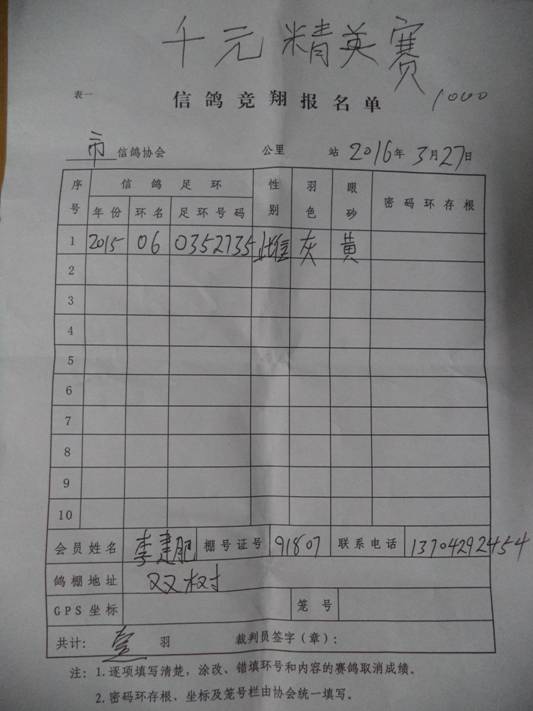 千元精英赛
表一 信鸽竞翔报名单 1000
市信鸽协会 公里 站 2016年3月27日
序号 信鸽足环 性别 羽色 眼砂 密码环存根
年份 环名 足环号码
1 2015 06 0352735 雌 灰 黄
2
3
4
5
6
7
8
9
10
会员姓名 李建 棚号证号 91807 联系电话 13704292454
鸽棚地址 双树
GPS坐标 笼号
共计: 羽 裁判员签字(章):
注: 1.逐项填写清楚,涂改、错填环号和内容的赛鸽取消成绩。
2.密码环存根、坐标及笼号栏由协会统一填写。